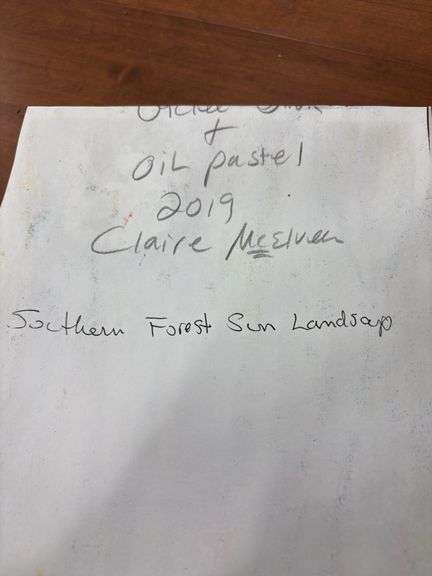 +
OiL pastel
2019
Claire McElveen
Southern Forest Sun Landsap